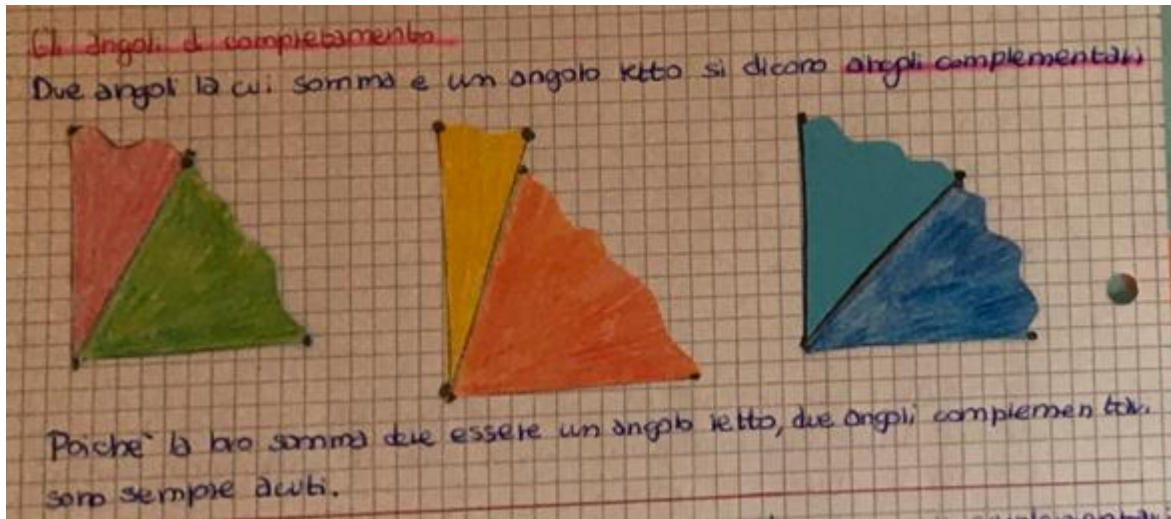 Gli angoli di completamento
Due angoli la cui somma è un angolo retto si dicono angoli complementari
Poiché la loro somma deve essere un angolo retto, due angoli complementari
sono sempre acuti.